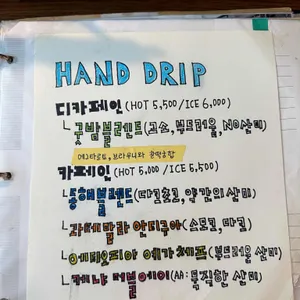 HAND DRIP
디카페인 (HOT 5,500 / ICE 6,000)
ㄴ굿밤블렌트 (고소, 부드러움, NO산미)
에그타르트, 브라우니와 꿀떡궁합
카페인 (HOT 5,000 / ICE 5,500)
ㄴ동해블렌드 (다크초코, 약간의 산미)
ㄴ과테말라 안티구아 (스모키, 다크)
ㄴ에티오피아 예가체프 (부드러운 산미)
ㄴ케냐 더블에이 (AA: 묵직한 산미)